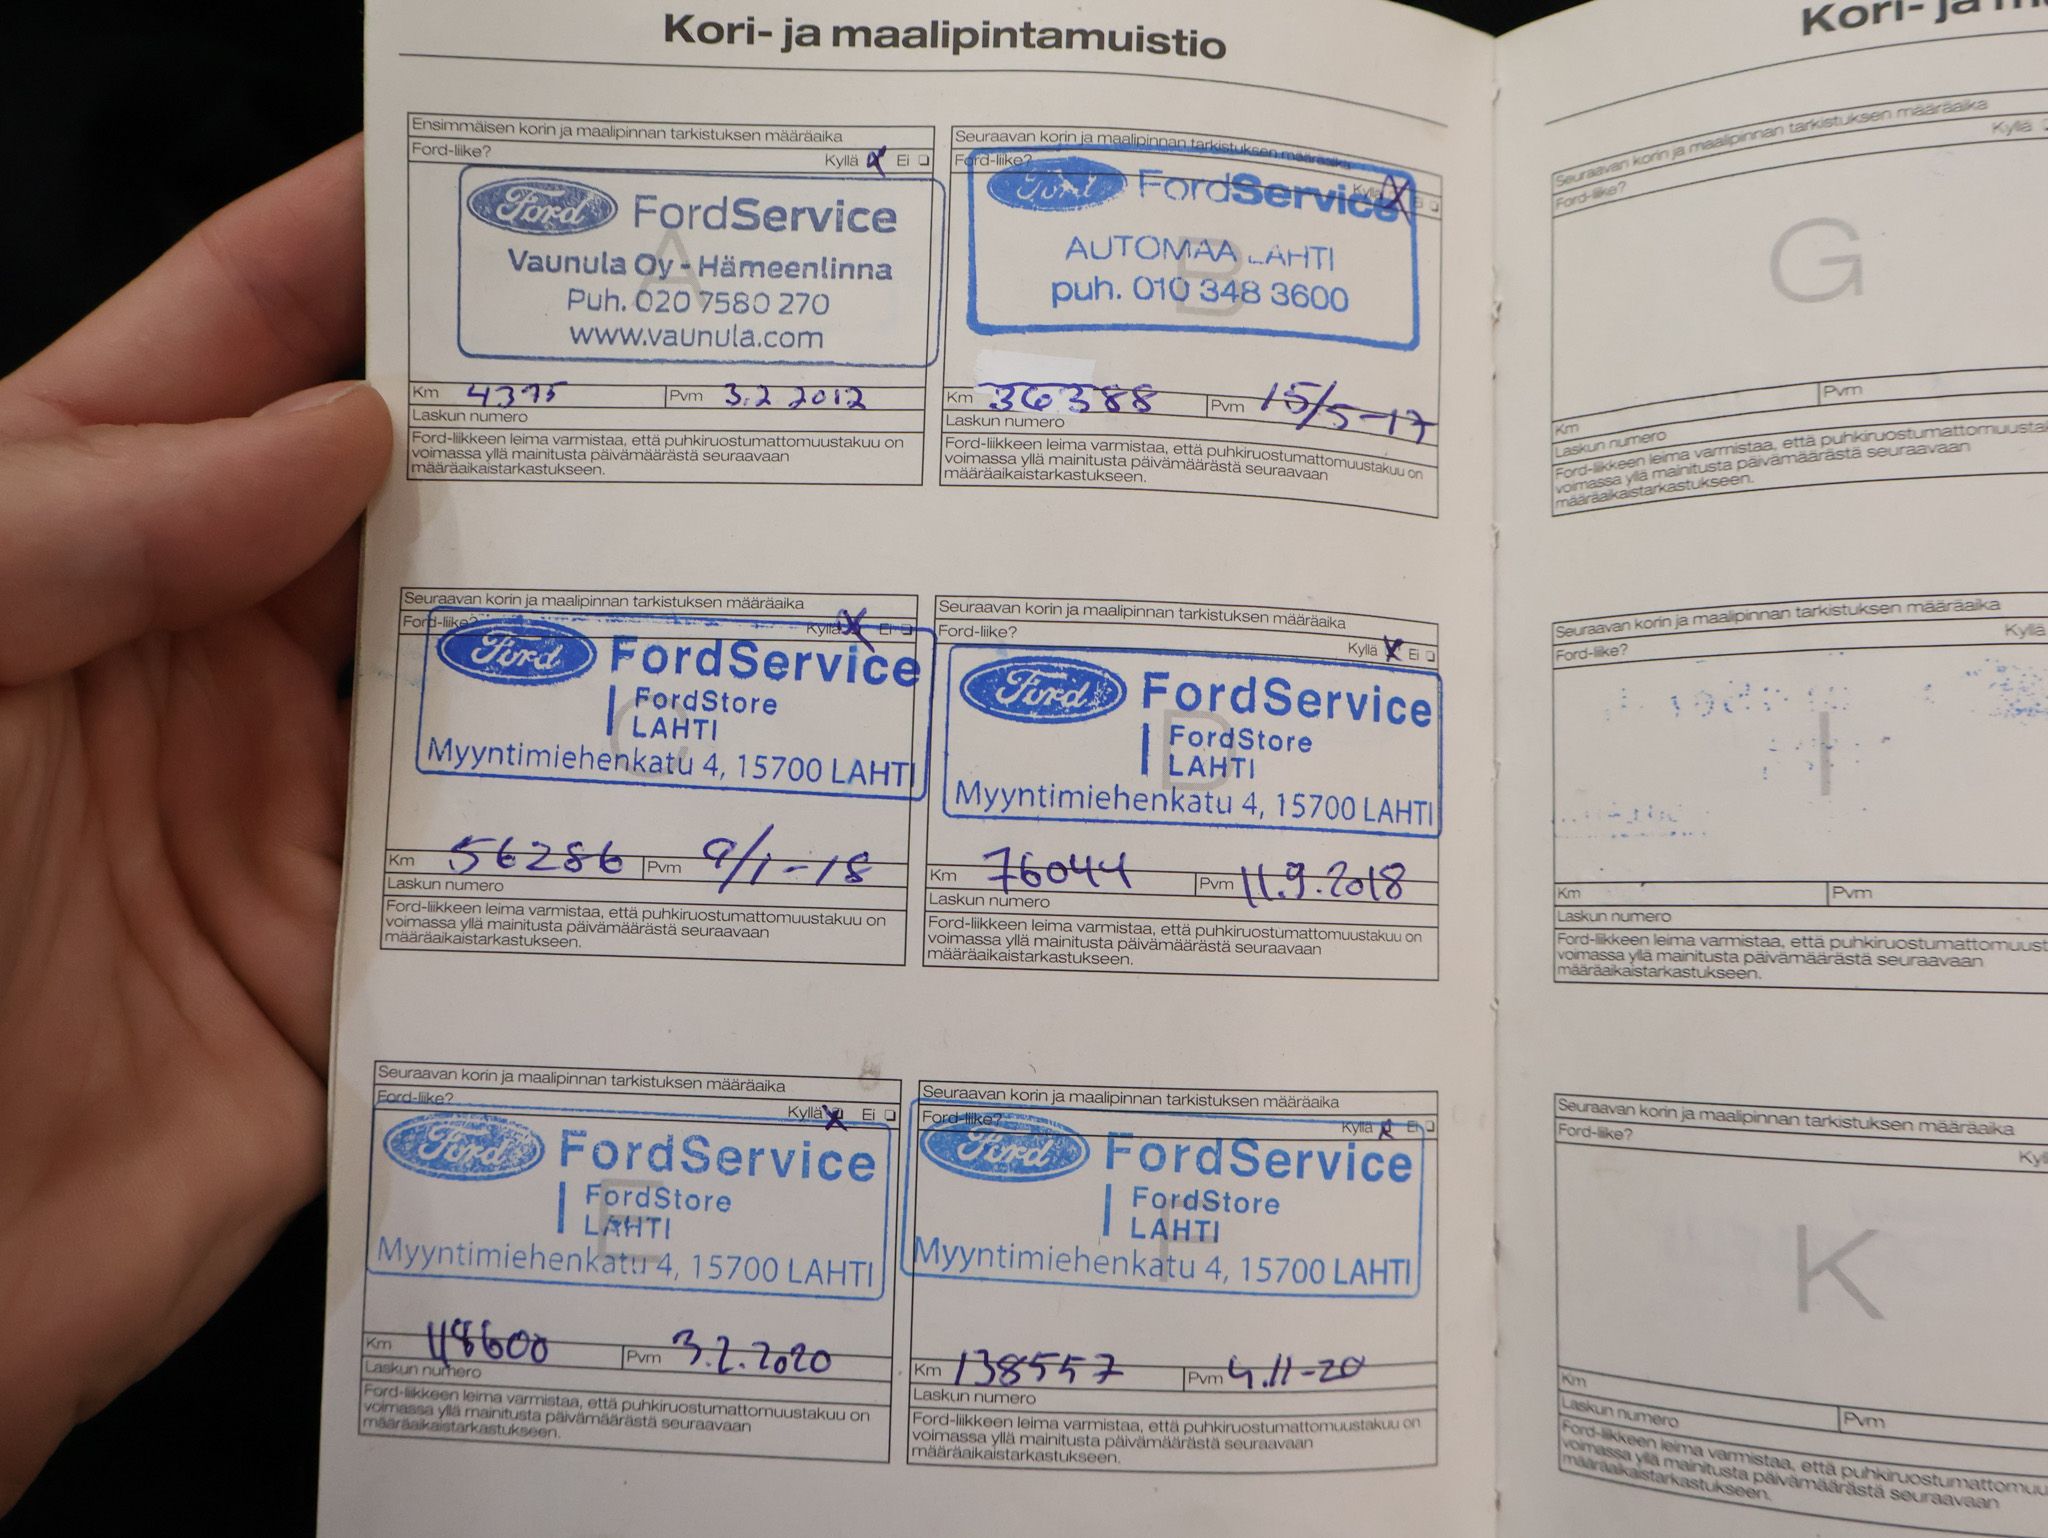 Kori- ja maalipintamuistio
Ensimmäisen korin ja maalipinnan tarkistuksen määräaika
Ford-liike?
Kyllä Ei
A
Ford FordService
Vaunula Oy - Hämeenlinna
Puh. 020 7580 270
www.vaunula.com
Km 4375 Pvm 3.2 2012
Laskun numero
Ford-liikkeen leima varmistaa, että puhkiruostumattomuustakuu on
voimassa yllä mainitusta päivämäärästä seuraavaan
määräaikaistarkastukseen.
Seuraavan korin ja maalipinnan tarkistuksen määräaika
Ford-liike?
Kyllä Ei
B
Ford FordService
AUTOMAA LAHTI
puh. 010 348 3600
Km 36388 Pvm 15/5-17
Laskun numero
Ford-liikkeen leima varmistaa, että puhkiruostumattomuustakuu on
voimassa yllä mainitusta päivämäärästä seuraavaan
määräaikaistarkastukseen.
Seuraavan korin ja maalipinnan tarkistuksen määräaika
Ford-liike?
Kyllä Ei
C
Ford FordService
FordStore
LAHTI
Myyntimiehenkatu 4, 15700 LAHTI
Km 56286 Pvm 9/1-18
Laskun numero
Ford-liikkeen leima varmistaa, että puhkiruostumattomuustakuu on
voimassa yllä mainitusta päivämäärästä seuraavaan
määräaikaistarkastukseen.
Seuraavan korin ja maalipinnan tarkistuksen määräaika
Ford-liike?
Kyllä Ei
D
Ford FordService
FordStore
LAHTI
Myyntimiehenkatu 4, 15700 LAHTI
Km 76044 Pvm 11.9.2018
Laskun numero
Ford-liikkeen leima varmistaa, että puhkiruostumattomuustakuu on
voimassa yllä mainitusta päivämäärästä seuraavaan
määräaikaistarkastukseen.
Seuraavan korin ja maalipinnan tarkistuksen määräaika
Ford-liike?
Kyllä Ei
E
Ford FordService
FordStore
LAHTI
Myyntimiehenkatu 4, 15700 LAHTI
Km 118600 Pvm 3.2.2020
Laskun numero
Ford-liikkeen leima varmistaa, että puhkiruostumattomuustakuu on
voimassa yllä mainitusta päivämäärästä seuraavaan
määräaikaistarkastukseen.
Seuraavan korin ja maalipinnan tarkistuksen määräaika
Ford-liike?
Kyllä Ei
F
Ford FordService
FordStore
LAHTI
Myyntimiehenkatu 4, 15700 LAHTI
Km 138557 Pvm 4.11-20
Laskun numero
Ford-liikkeen leima varmistaa, että puhkiruostumattomuustakuu on
voimassa yllä mainitusta päivämäärästä seuraavaan
määräaikaistarkastukseen.
Kori- ja
Seuraavan korin ja maalipinnan tarkistuksen määräaika
Ford-liike?
Kyllä
G
Km Pvm
Laskun numero
Ford-liikkeen leima varmistaa, että
voimassa yllä mainitusta päivämäärästä seuraavaan
määräaikaistarkastukseen.
Seuraavan korin ja maalipinnan tarkistuksen määräaika
Ford-liike?
Kyllä
I
Km Pvm
Laskun numero
Ford-liikkeen leima varmistaa, että
voimassa yllä mainitusta päivämäärästä seuraavaan
määräaikaistarkastukseen.
Seuraavan korin ja maalipinnan tarkistuksen määräaika
Ford-liike?
K
Km
Laskun numero Pvm
Ford-liikkeen leima varmistaa, että
voimassa yllä mainitusta päivämäärästä seuraavaan
määräaikaistarkastukseen.